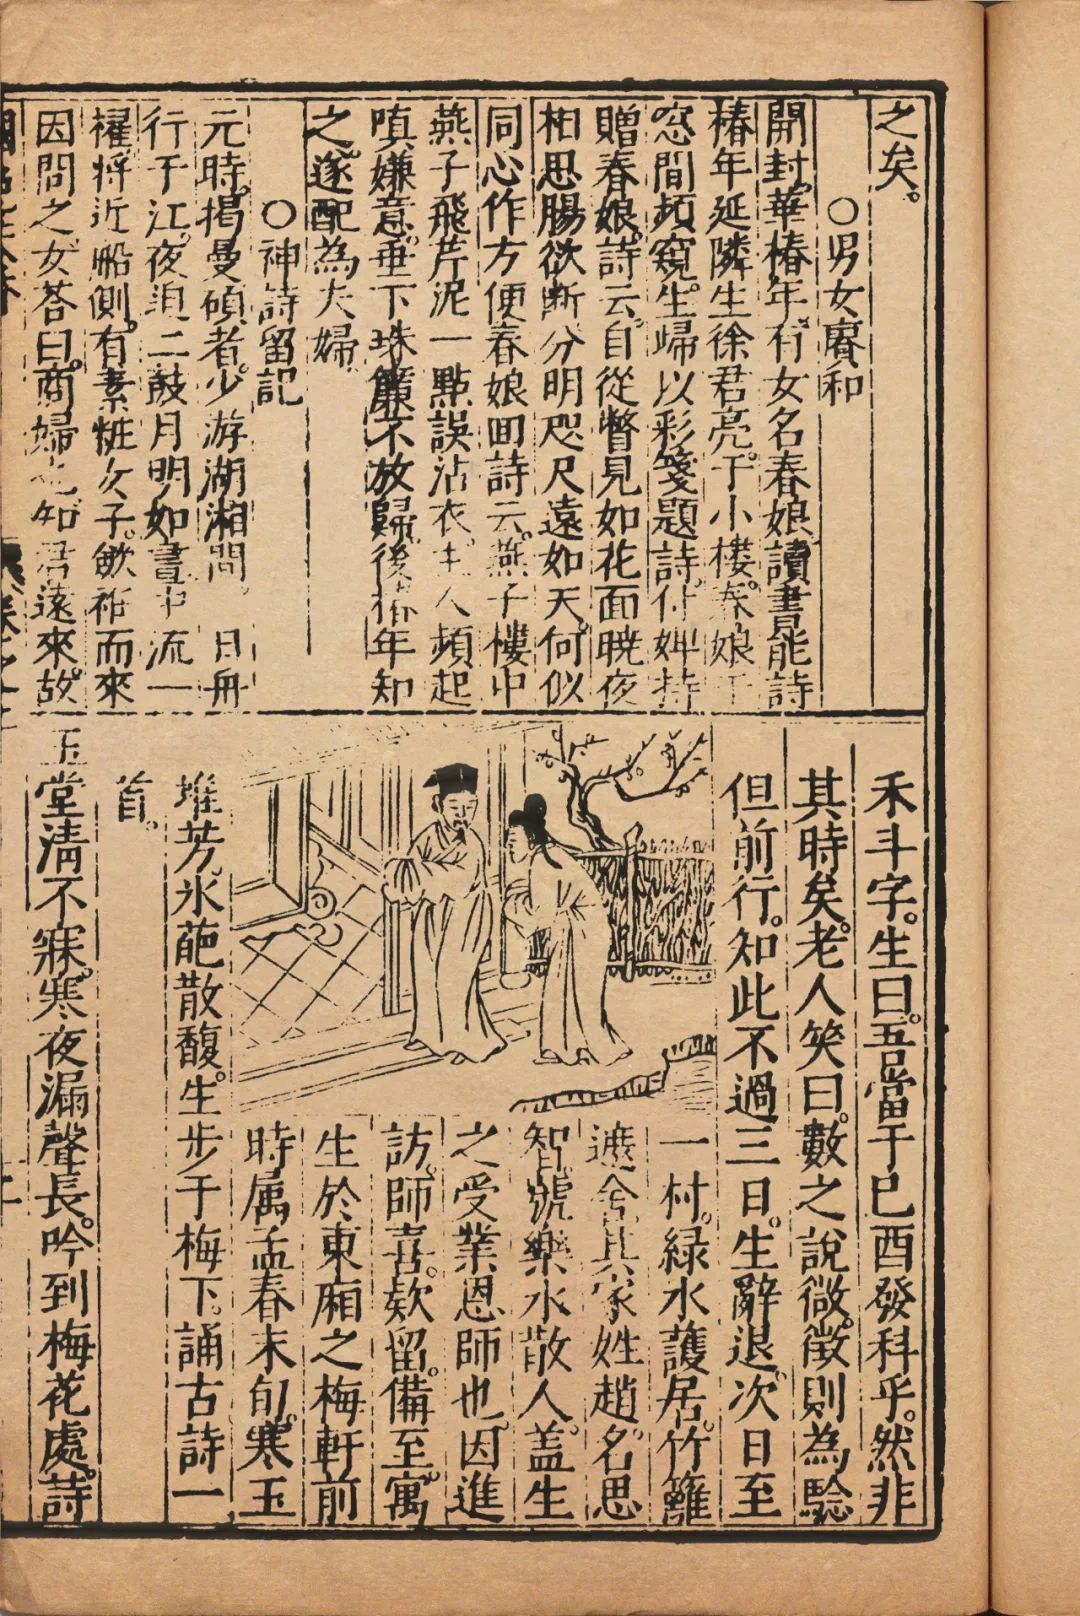 之矣。
○男女賡和
開封華椿年有女名春娘讀書能詩
椿年延隣生徐君亮于小樓春娘于
窓間頻窺生歸以彩箋題詩付婢持
贈春娘詩云自從瞥見如花面曉夜
相思腸欲斷分明咫尺遠如天何似
同心作方便春娘回詩云燕子樓中
燕子飛芹泥一點誤沾衣主人頻起
嗔嫌意垂下珠簾不放歸後椿年知
之遂配為夫婦
○神詩留記
元時揭曼碩者少游湖湘間 日舟
行于江夜迫二鼓月明如晝中流一
櫂將近船側有素粧女子歛袵而來
因問之女荅曰商婦也知君遠來故
禾斗字。生曰。吾當于巳酉發科乎。然非
其時矣。老人笑曰。數之說微。徵則為驗
但前行。知此不過三日。生辭退。次日至
一村。綠水護居。竹籬
遮舍其家姓趙。名思
智。號樂水散人。蓋生
之受業恩師也。因進
訪。師喜。欵留。備至。寓
生於東廂之梅軒前
時属孟春末旬。寒玉
堆芳。氷葩散馥。生步于梅下。誦古詩一
首。
玉堂清不寐。寒夜漏聲長。吟到梅花處。詩